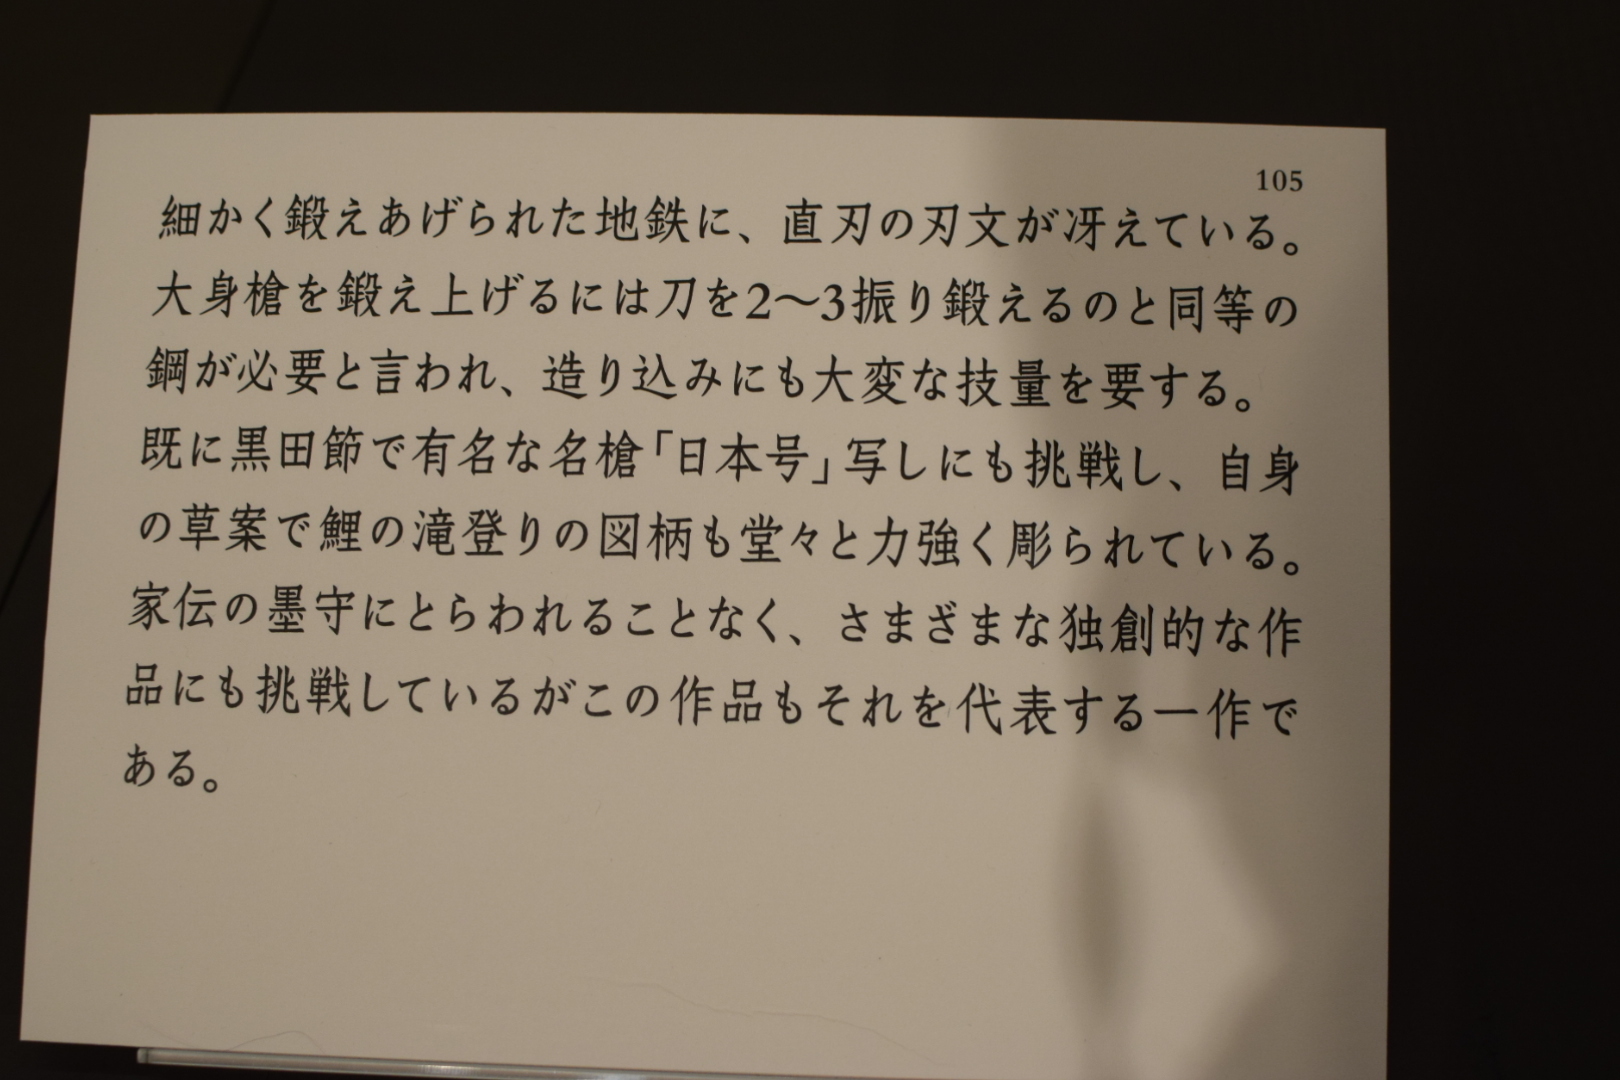 105
細かく鍛えあげられた地鉄に、直刃の刃文が冴えている。
大身槍を鍛え上げるには刀を2〜3振り鍛えるのと同等の
鋼が必要と言われ、造り込みにも大変な技量を要する。
既に黒田節で有名な名槍「日本号」写しにも挑戦し、自身
の草案で鯉の滝登りの図柄も堂々と力強く彫られている。
家伝の墨守にとらわれることなく、さまざまな独創的な作
品にも挑戦しているがこの作品もそれを代表する一作で
ある。